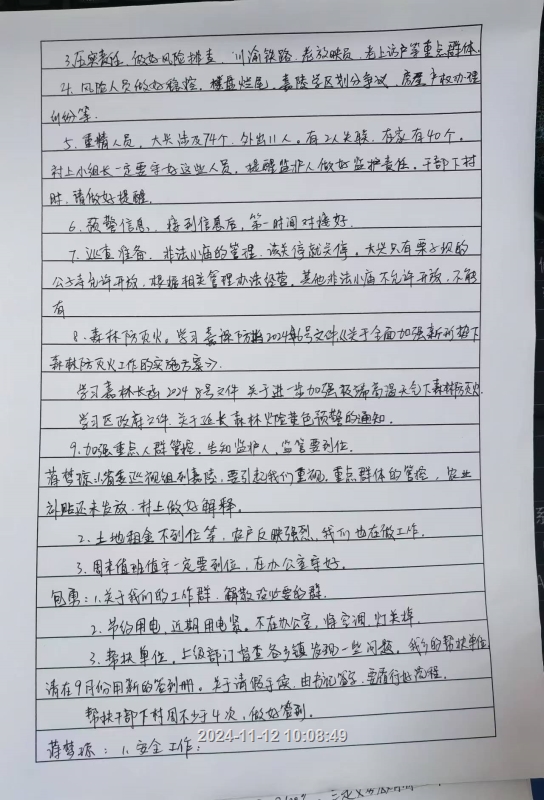 3.压实责任,做好风险排查,川渝铁路、老放映员、老上访户等重点群体.
4.风险人员做好稳控,楼盘烂尾,嘉陵学区划分争议,房屋产权办理
纠纷等.
5.重精人员,大兴涉及74个,外出11人,有2人失联,在家有40个.
村上小组长一定要守好这些人员,提醒监护人做好监护责任.干部下村
时,请做好提醒.
6.预警信息,接到信息后,第一时间对接好.
7.巡查准备.非法小庙的管理,该关停就关停.大兴只有栗子坝的
公子寺允许开放.根据相关管理办法经营,其他非法小庙不允许开放,不能
有
8.森林防灭火.学习嘉森防指2024年6号文件《关于全面加强新形势下
森林防灭火工作的实施方案》.
学习嘉林长函2024 8号文件 关于进一步加强极端高温天气下森林防灭火.
学习区政府文件 关于延长森林火险黄色预警的通知.
9.加强重点人群管控,告知监护人,监管要到位.
蒋梦琼:1.省委巡视组到嘉陵,要引起我们重视.重点群体的管控,农业
补贴还未发放,村上做好解释.
2.土地租金不到位等,农户反映强烈,我们也在做工作.
3.周末值班值守一定要到位,在办公室守好.
包勇:1.关于我们的工作群,解散没必要的群.
2.节约用电,近期用电紧.不在办公室,将空调,灯关掉.
3.帮扶单位,上级部门督查各乡镇发现一些问题,我乡的帮扶单位
请在9月份用新的签到册.关于请假手续,由书记签字,要履行好流程.
帮扶干部下村周不少于4次,做好签到.
2024-11-12 10:08:49
蒋梦琼:1.安全工作: